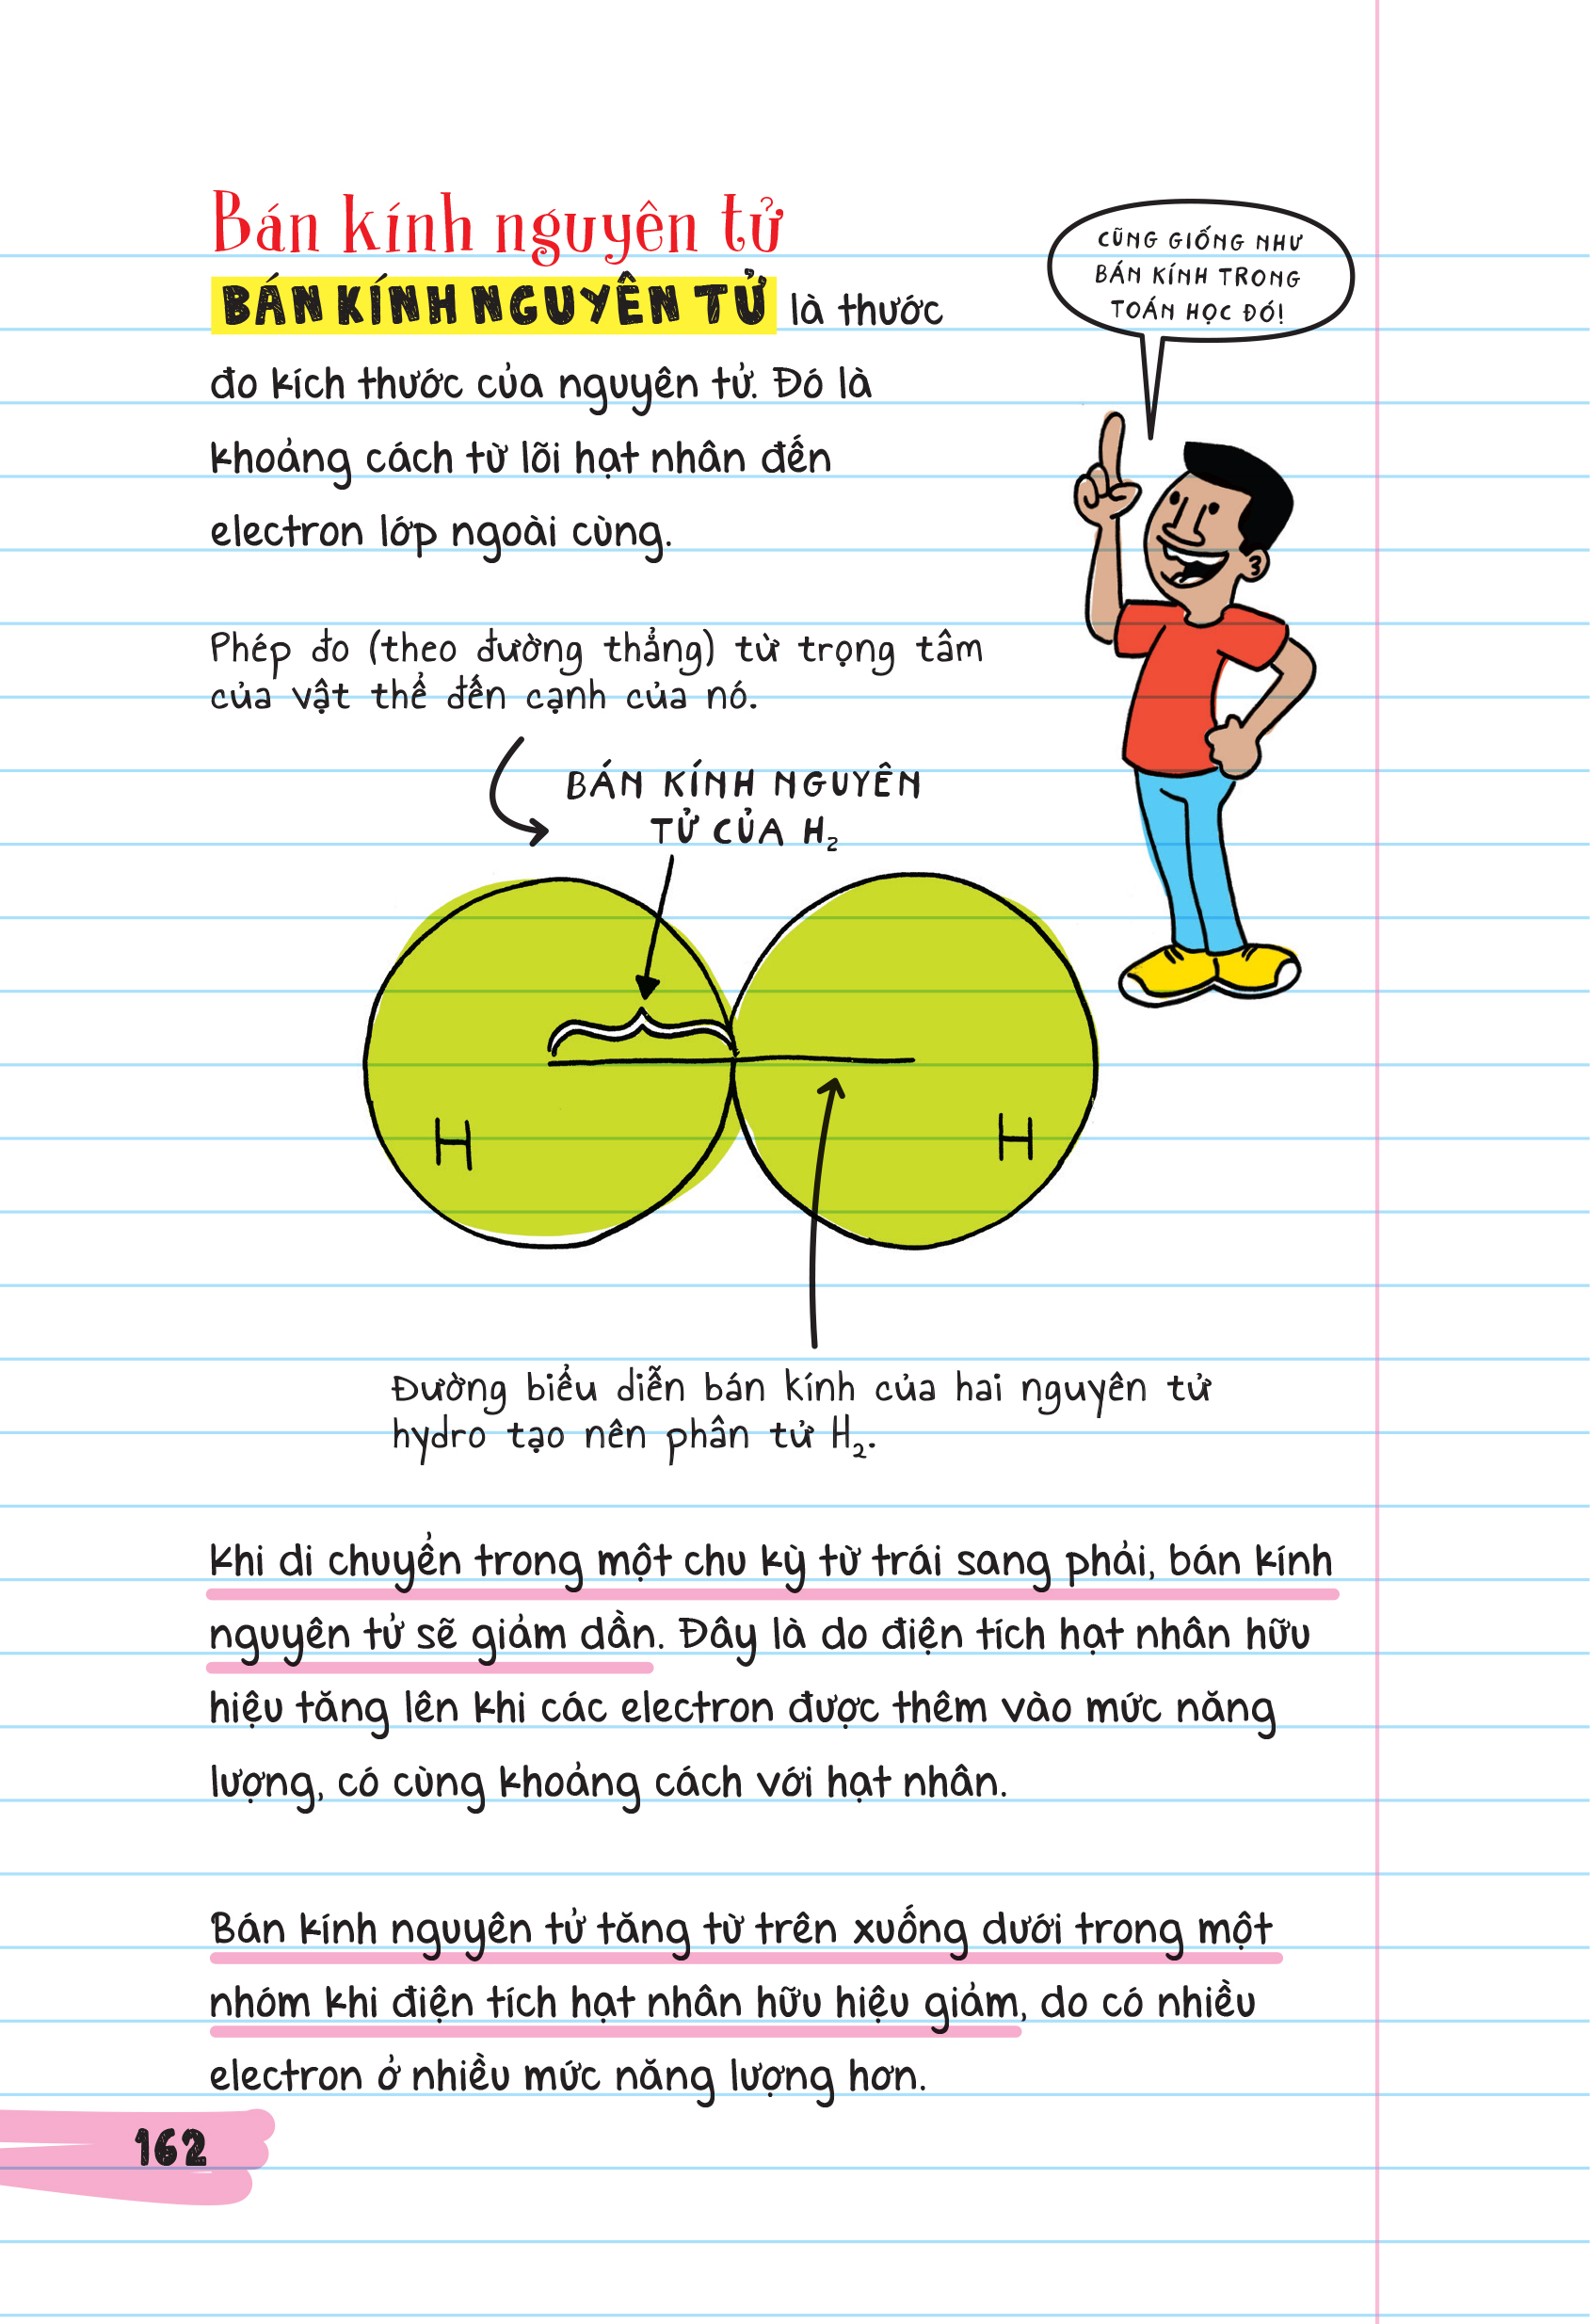 Bán kính nguyên tử
BÁN KÍNH NGUYÊN TỬ là thước
đo kích thước của nguyên tử. Đó là
khoảng cách từ lõi hạt nhân đến
electron lớp ngoài cùng.
CŨNG GIỐNG NHƯ
BÁN KÍNH TRONG
TOÁN HỌC ĐÓ!
Phép đo (theo đường thẳng) từ trọng tâm
của vật thể đến cạnh của nó.
BÁN KÍNH NGUYÊN
TỬ CỦA H₂
H
H
Đường biểu diễn bán kính của hai nguyên tử
hydro tạo nên phân tử H₂.
Khi di chuyển trong một chu kỳ từ trái sang phải, bán kính
nguyên tử sẽ giảm dần. Đây là do điện tích hạt nhân hữu
hiệu tăng lên khi các electron được thêm vào mức năng
lượng, có cùng khoảng cách với hạt nhân.
Bán kính nguyên tử tăng từ trên xuống dưới trong một
nhóm khi điện tích hạt nhân hữu hiệu giảm, do có nhiều
electron ở nhiều mức năng lượng hơn.
162